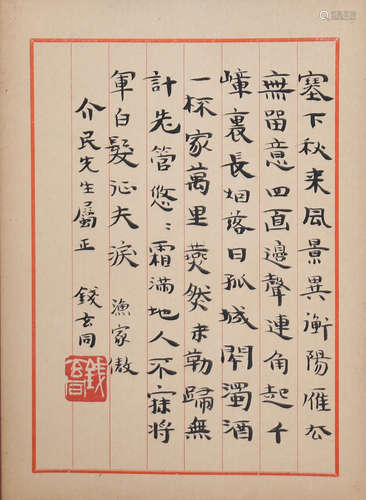 塞下秋来風景異衡陽雁厺
無留意四面邊聲連角起千
嶂裏長烟落日孤城閉濁酒
一杯家萬里燕然未勒歸無
計羌管悠〻霜滿地人不寐將
軍白髮征夫淚 漁家傲
介民先生屬正
錢玄同